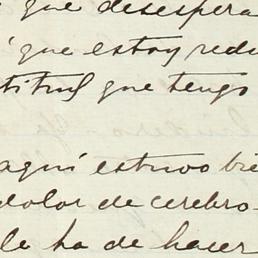 que desespera
que estoy redu
titud que tengo
aquí estuvo bie
dolor de cerebro-
le ha de hacer